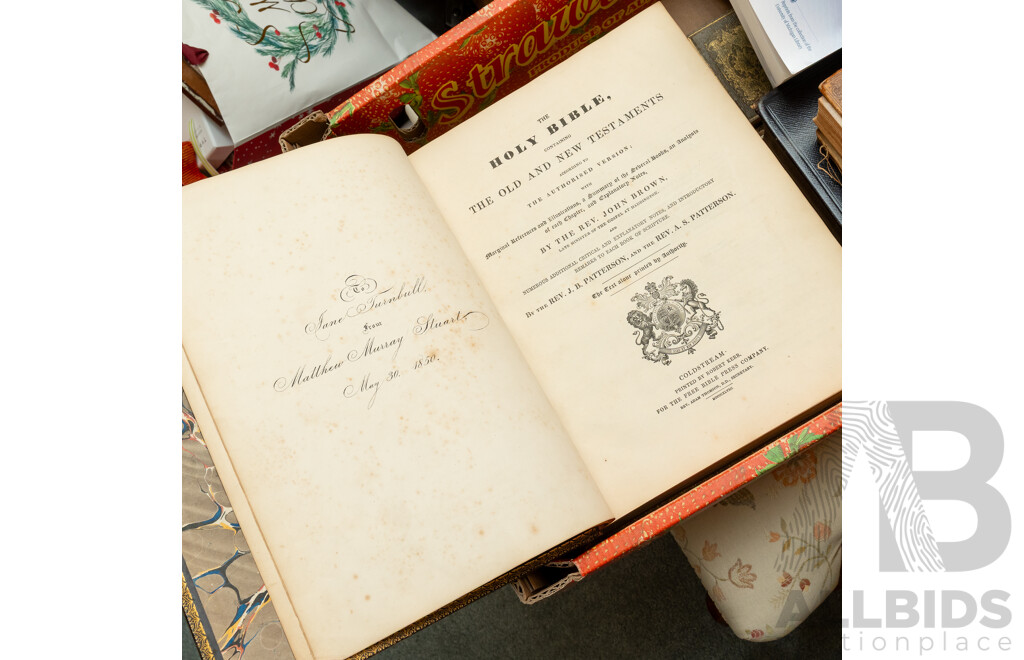 Strawb
PRODUCE OF AU
To
Jane Turnbull
From
Matthew Murray Stuart
May 30. 1850.
THE
HOLY BIBLE,
CONTAINING
THE OLD AND NEW TESTAMENTS
ACCORDING TO
THE AUTHORISED VERSION;
WITH
Marginal References and Illustrations, a Summary of the Several Books, an Analysis
of each Chapter, and Explanatory Notes,
BY THE REV. JOHN BROWN,
LATE MINISTER OF THE GOSPEL AT HADDINGTON;
AND
NUMEROUS ADDITIONAL CRITICAL AND EXPLANATORY NOTES, AND INTRODUCTORY
REMARKS TO EACH BOOK OF SCRIPTURE.
BY THE REV. J. B. PATTERSON, AND THE REV. A. S. PATTERSON.
The Text alone printed by Authority.
COLDSTREAM:
PRINTED BY ROBERT KERR,
FOR THE FREE BIBLE PRESS COMPANY.
REV. ADAM THOMSON, D.D., SECRETARY.
AB
ALLBIDS
auctionplace